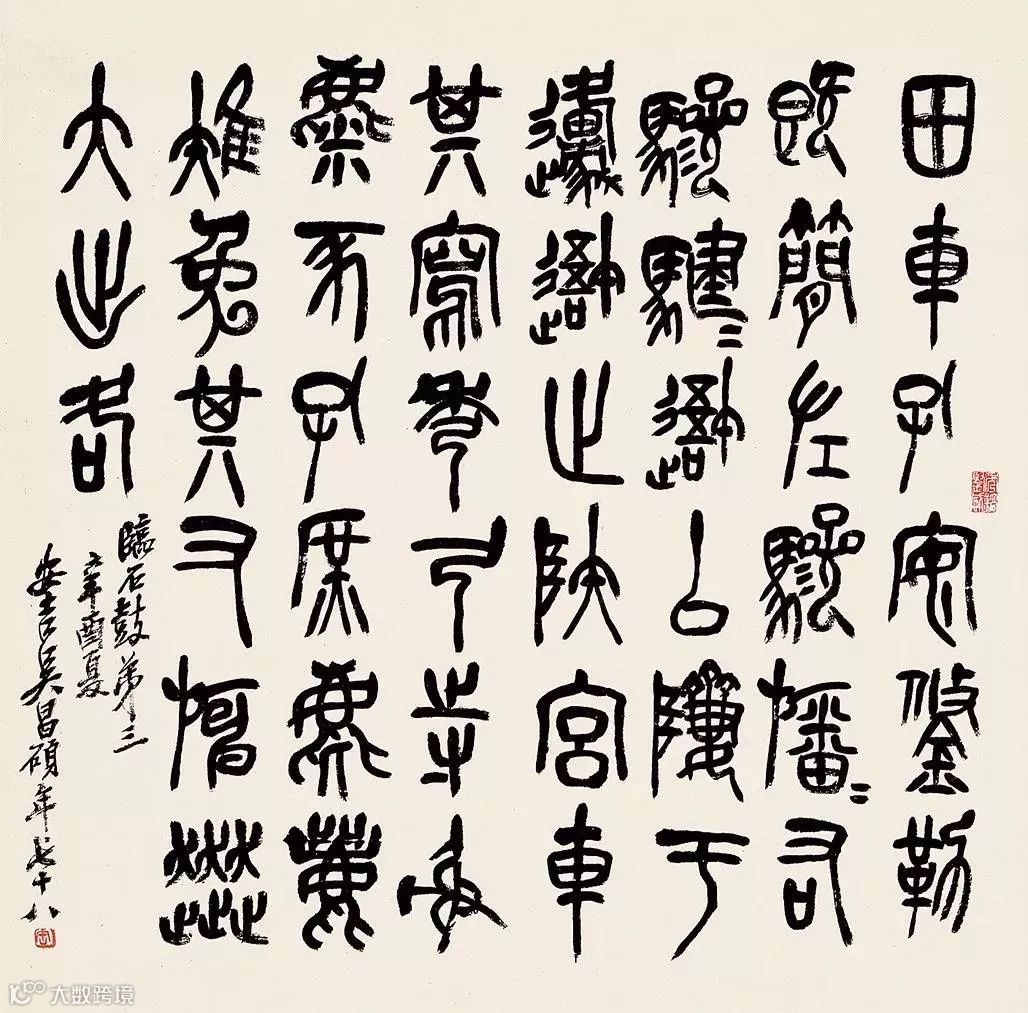 田車孔安鋚勒
既簡左驂旛=右
驂騝=吾以隮于
邍吾止陝宮車
其寫秀弓寺射
麋豕孔庶麀鹿
雉兔其又旃奔
大出各
臨石鼓弟三
辛酉夏
安吉吳昌碩年七十八
大数跨境